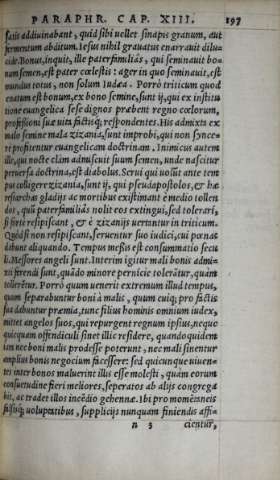 PARAPHR. CAP. XIII. 197
satis addiuinabant, quid sibi uellet sinapis granum, aut
fermentum abditum. Iesus nihil grauatus enarrauit dilu-
cide. Bonus, inquit, ille paterfamiliâs, qui seminauit bo-
num semen, est pater cœlestis: ager in quo seminauit, est
mundus totus, non solum Iudæa. Porrò triticum quod
enatum est bonum, ex bono semine, sunt ij, qui ex institu
tione euangelica sese dignos præbent regno cœlorum,
professioni suæ uitæ factisq; respondentes. His admixta ex
malo semine mala zizania, sunt improbi, qui non synce-
re profitentur euangelicam doctrinam. Inimicus autem
ille, qui nocte clàm admiscuit suum semen, unde nascitur
peruersa doctrina, est diabolus. Serui qui uolūt ante tem
pus colligere zizania, sunt ij, qui pseudapostolos, & hæ
resiarchas gladijs ac mortibus existimant è medio tollen
dos, quū paterfamiliâs nolit eos extingui, sed tolerari,
si fortè resipiscant, & è zizanijs uertantur in triticum.
Quòd si non resipiscant, seruentur suo iudici, cui pœnas
dabunt aliquando. Tempus messis est consummatio secu
li. Messores angeli sunt. Interim igitur mali bonis admi-
xti ferendi sunt, quādo minore pernicie tolerātur, quàm
tollerētur. Porrò quum uenerit extremum illud tempus,
quum separabuntur boni à malis, quum cuiq; pro factis
sua dabuntur præmia, tunc filius hominis omnium iudex,
mittet angelos suos, qui repurgent regnum ipsius, neque
quicquam offendiculi sinet illic residere, quandoquidem
iam nec boni malis prodesse poterunt, nec mali sinentur
amplius bonis negocium facessere: sed quicunque uiuen-
tes inter bonos maluerint illis esse molesti, quàm eorum
consuetudine fieri meliores, seperatos ab alijs congrega
bit, ac tradet illos incēdio gehennæ. Ibi pro momētaneis
fictisq; uoluptatibus, supplicijs nunquam finiendis affi-
n 3 cientur,